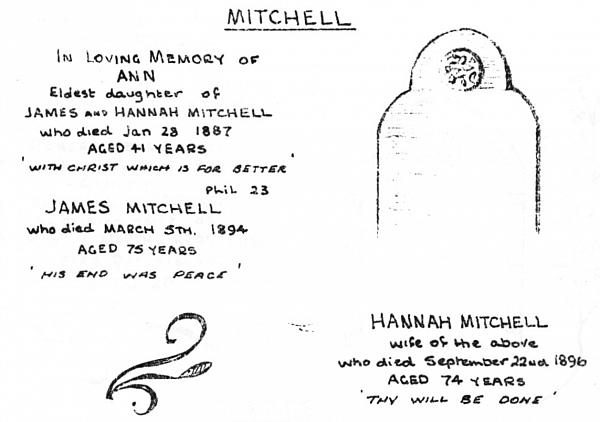 MITCHELL
IN LOVING MEMORY OF
ANN
Eldest daughter of
JAMES AND HANNAH MITCHELL
who died Jan 28 1887
AGED 41 YEARS
'WITH CHRIST WHICH IS FOR BETTER'
Phil 23
JAMES MITCHELL
who died MARCH 5TH. 1894
AGED 75 YEARS
'HIS END WAS PEACE'
HANNAH MITCHELL
wife of the above
who died September 22nd 1896
AGED 74 YEARS
'THY WILL BE DONE'